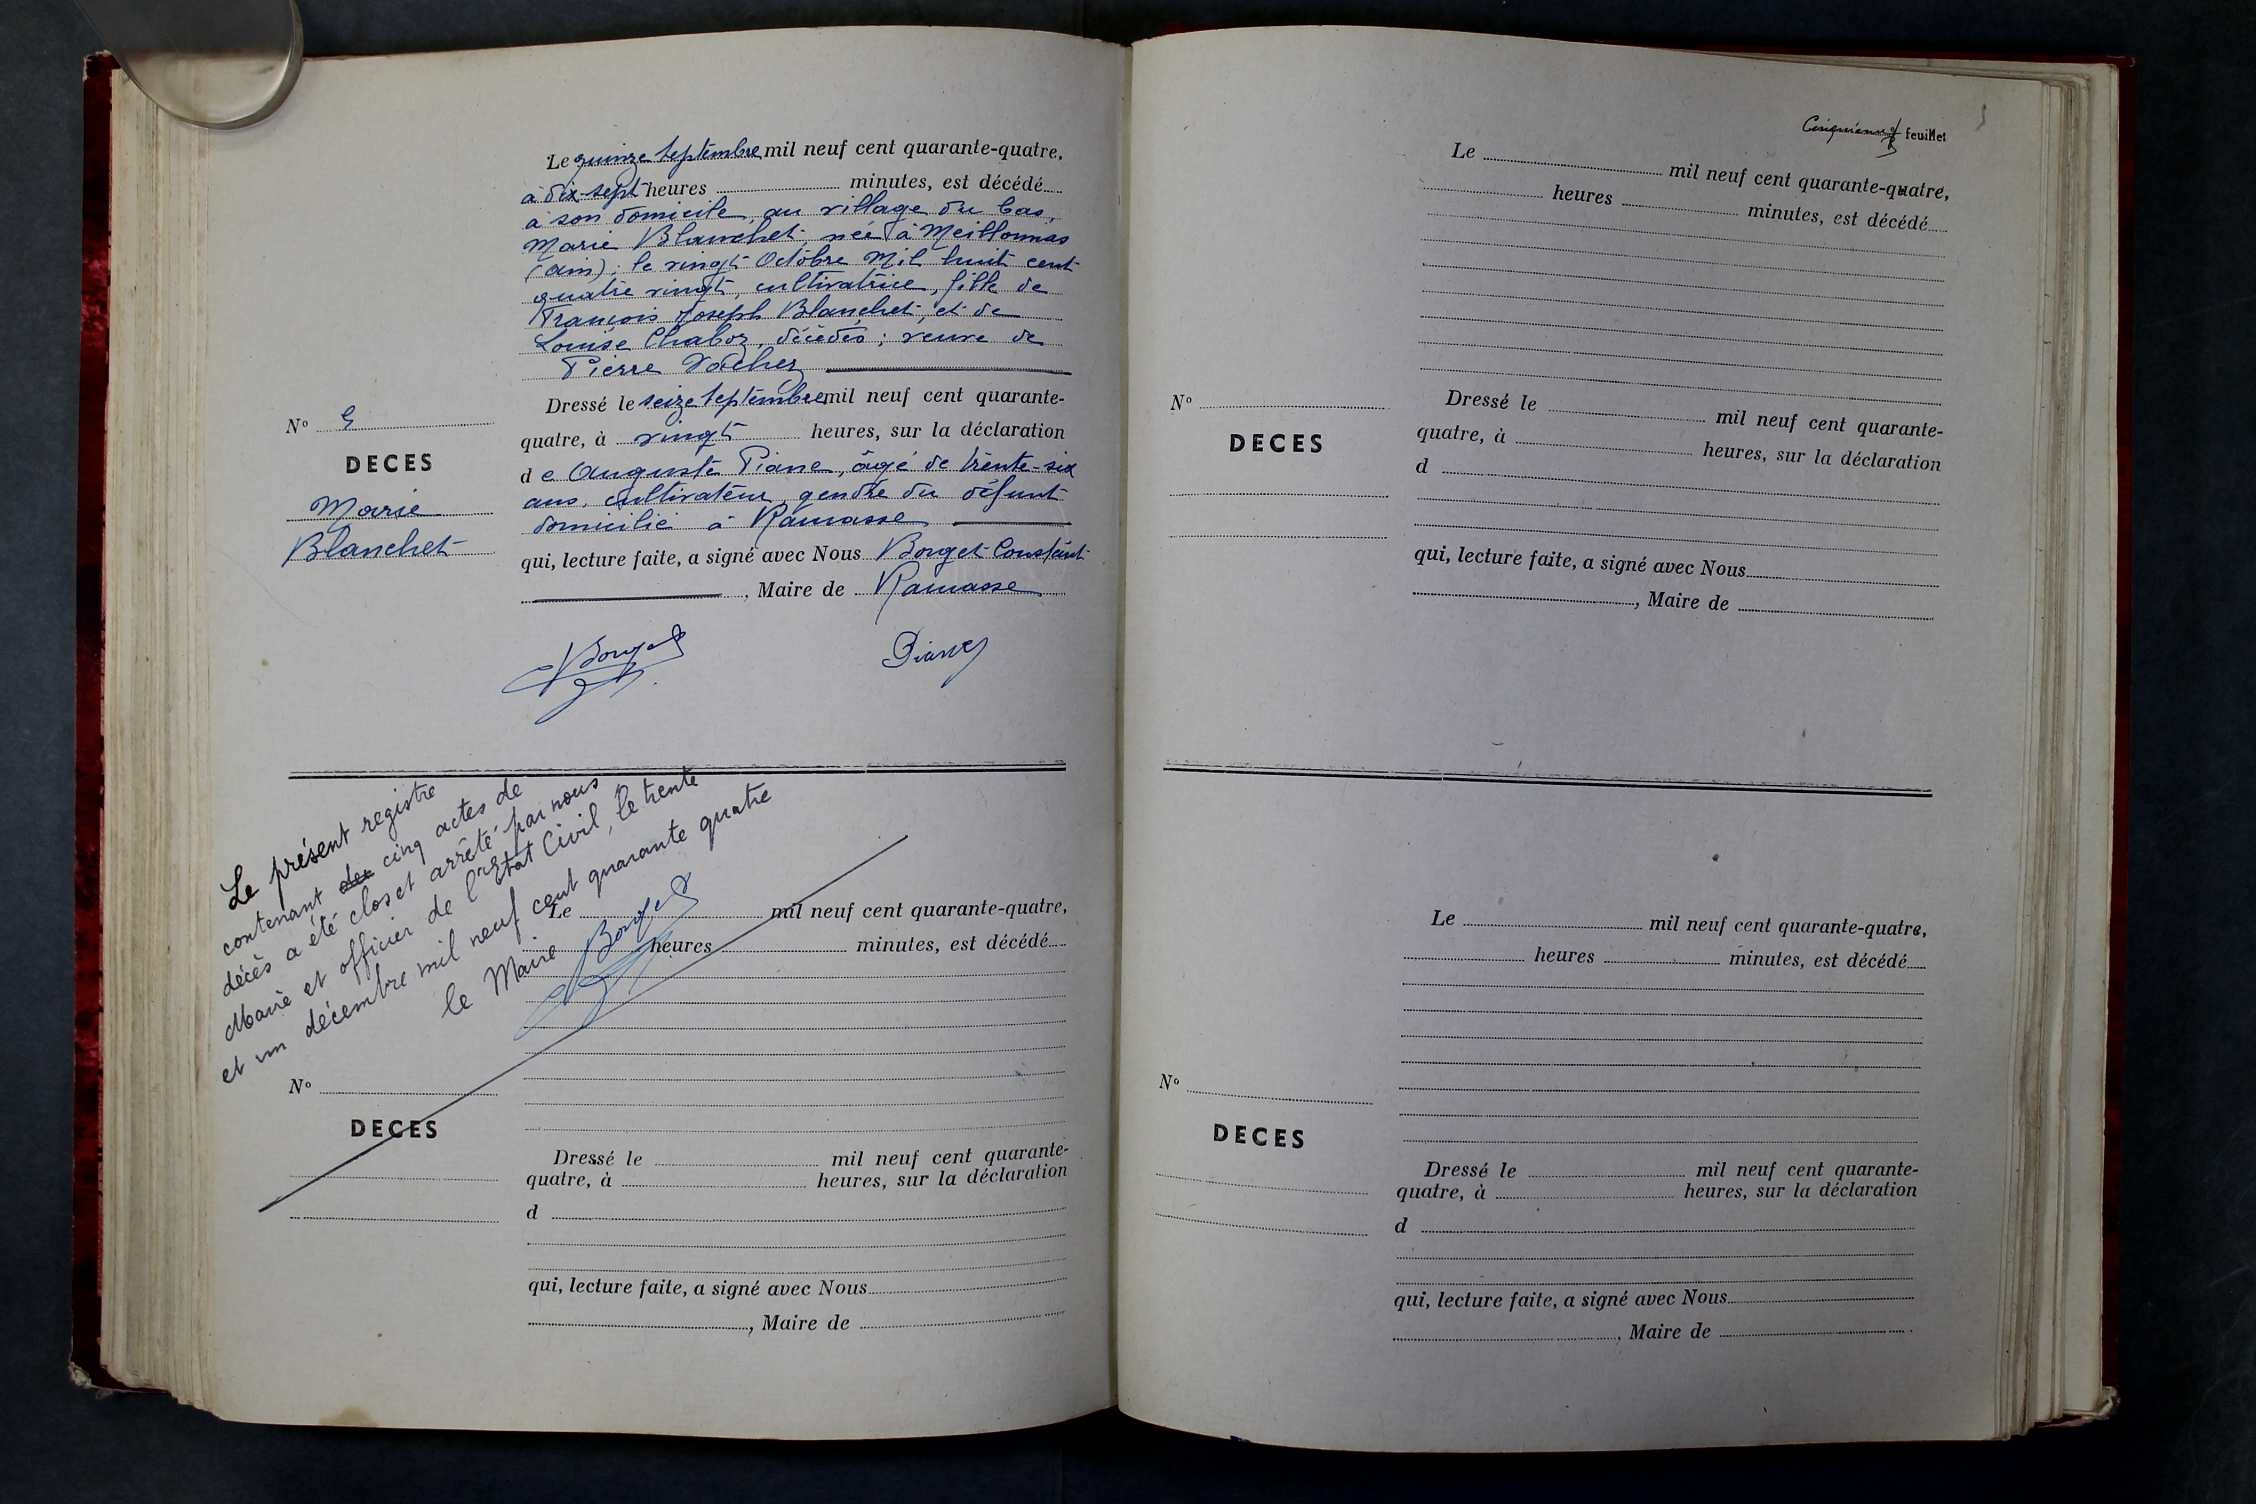 Le quinze Septembre mil neuf cent quarante-quatre,
à dix-sept heures minutes, est décédé
à son domicile, au village du bas,
Marie Blanchet, née à Meillonnas
(Ain), le vingt Octobre Mil huit cent
quatre vingt, cultivatrice, fille de
François Joseph Blanchet, et de
Louise Chaboz, décédés ; veuve de
Pierre Vacher
Dressé le seize Septembre mil neuf cent quarante-
quatre, à vingt heures, sur la déclaration
d e Auguste Piane, âgé de trente-six
ans, cultivateur, gendre du défunt
domicilié à Ramasse
qui, lecture faite, a signé avec Nous Borget Constant
, Maire de Ramasse
N° 5
DECES
Marie
Blanchet
Borget
Piane
Le présent registre
contenant des cinq actes de
décès a été clos et arrêté par nous
Maire et officier de l'Etat Civil, le trente
et un décembre mil neuf cent quarante quatre
le Maire
Borget
Le mil neuf cent quarante-quatre,
heures minutes, est décédé
N°
DECES
Dressé le mil neuf cent quarante-
quatre, à heures, sur la déclaration
d
qui, lecture faite, a signé avec Nous
, Maire de
Cinquième feuillet
Le mil neuf cent quarante-quatre,
heures minutes, est décédé
N°
DECES
Dressé le mil neuf cent quarante-
quatre, à heures, sur la déclaration
d
qui, lecture faite, a signé avec Nous
, Maire de
Le mil neuf cent quarante-quatre,
heures minutes, est décédé
N°
DECES
Dressé le mil neuf cent quarante-
quatre, à heures, sur la déclaration
d
qui, lecture faite, a signé avec Nous
, Maire de